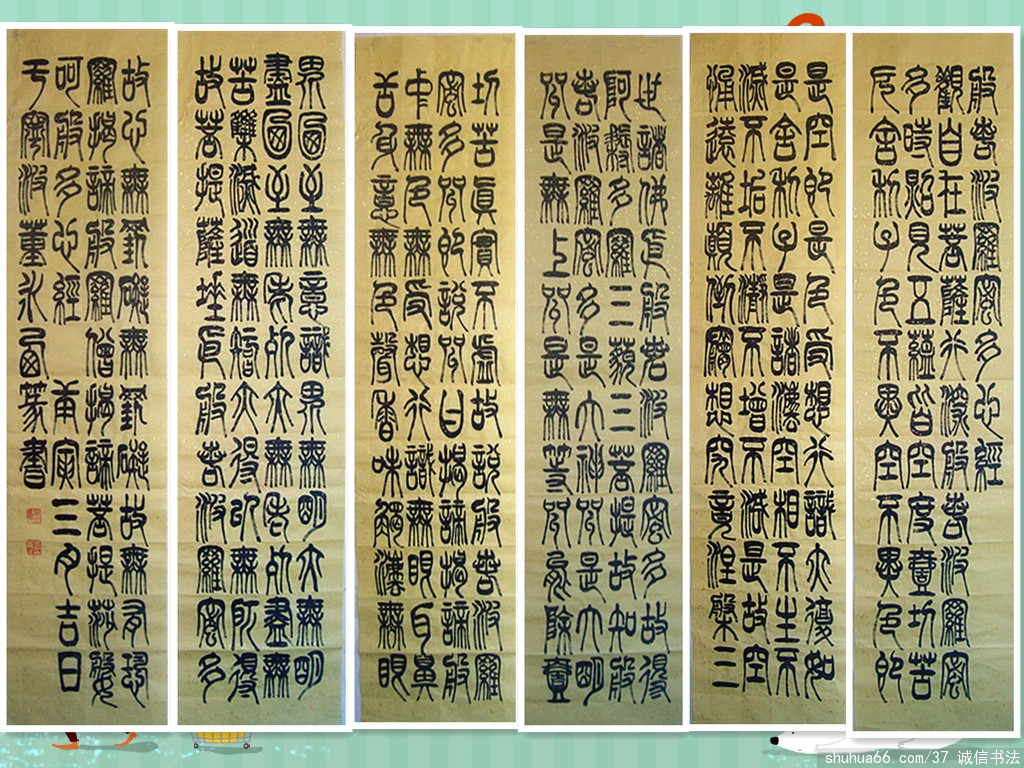 般若波羅蜜多心經
觀自在菩薩行深般若波羅蜜
多時照見五蘊皆空度壹切苦
厄舍利子色不異空不異色即
是空即是色受想行識亦復如
是舍利子是諸法空相不生不
滅不垢不淨不增不減是故空
惟遠離顛倒夢想究竟涅槃三
世諸佛依般若波羅蜜多故得
阿耨多羅三藐三菩提故知般
若波羅蜜多是大神咒是大明
咒是無上咒是無等咒能除壹
切苦真實不虛故說般若波羅
蜜多咒即說咒曰揭諦揭諦般
中無色無受想行識無眼耳鼻
舌身意無色聲香味觸法無眼
界迺至無意識界無明亦無明
盡迺至無老死亦無老死盡無
苦集滅道無智亦得以無所得
故菩提薩埵依般若波羅蜜多
故心無罣礙無罣礙故無有恐
羅揭諦般羅僧揭諦菩提莎婆
呵般多心經 庚寅三月吉日
于寧波董永西篆書
shuhua66.com/37 诚信书法